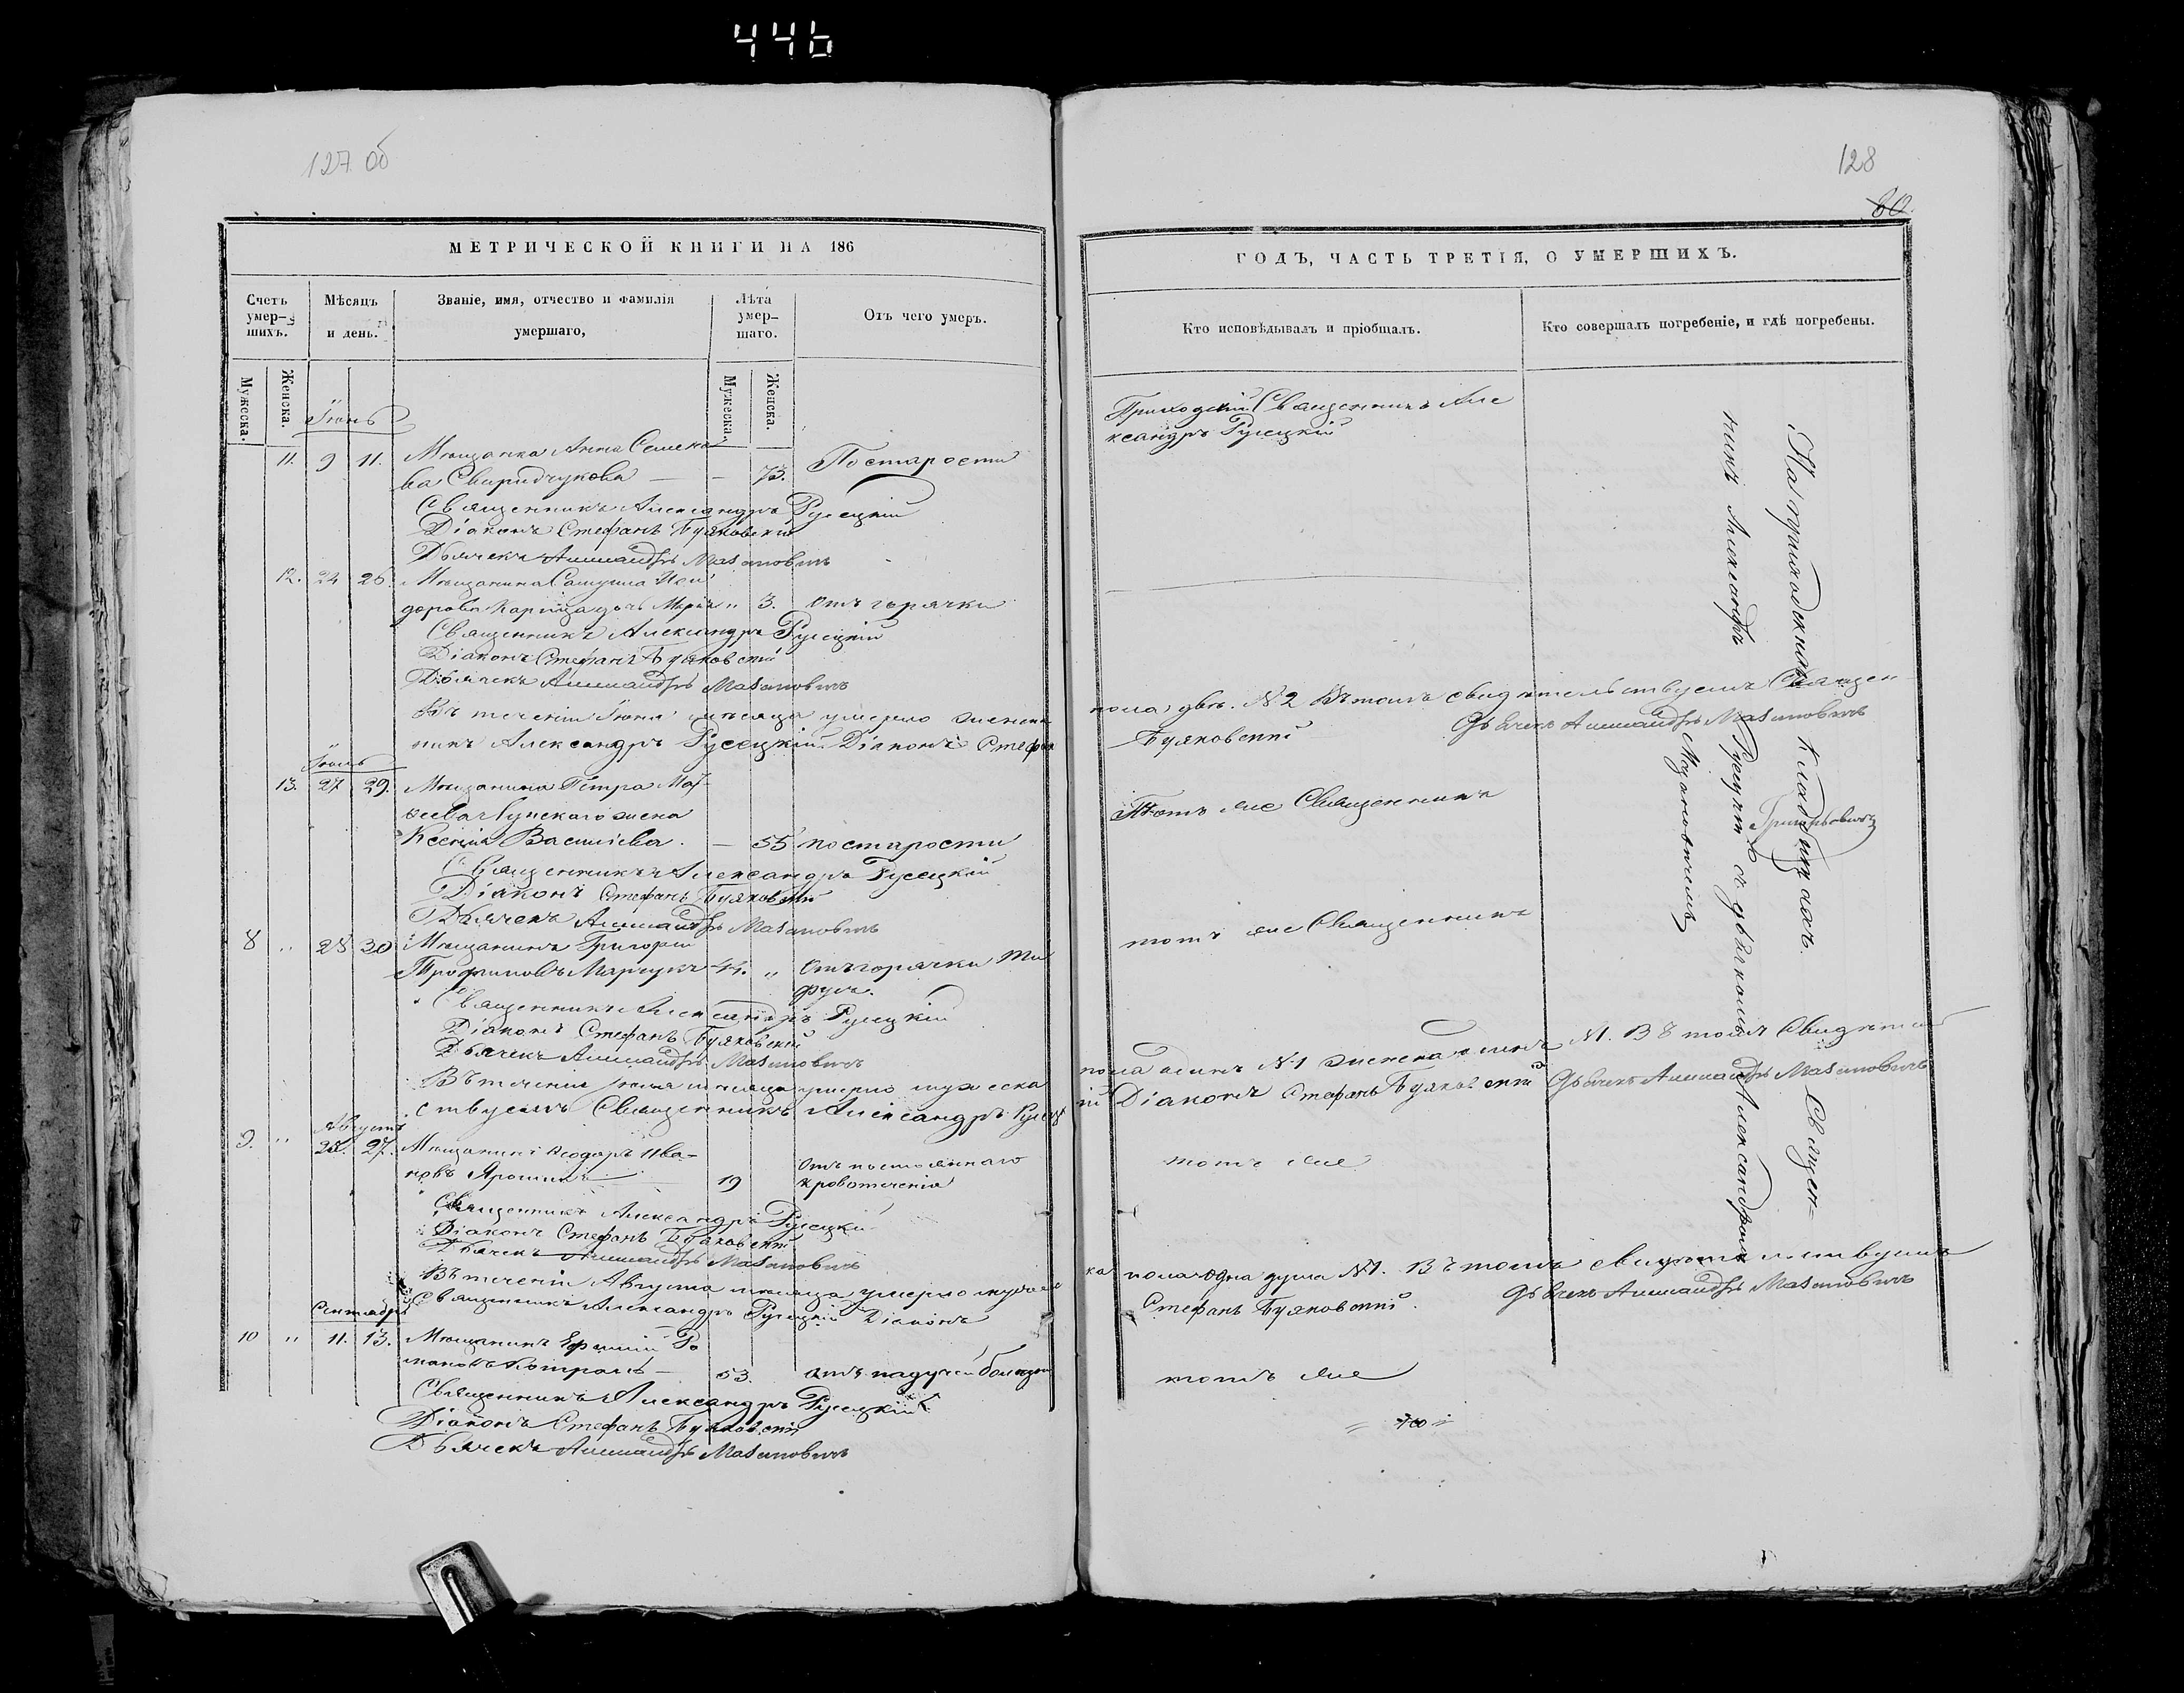 446
127 об
МЕТРИЧЕСКОЙ КНИГИ НА 186
Счетъ умер-шихъ.
Мѣсяцъ и день.
Званіе, имя, отчество и фамилія умершаго,
Лѣта умер-шаго.
Отъ чего умеръ.
Мужеска.
Женска.
Мужеска.
Женска.
Іюнь
11. 9 11. Мѣщанка Анна Семено
ва Свиридчукова — — 73. По старости
Священникъ Александръ Русецкій
Діаконъ Стефанъ Буяковскій
Дьячекъ Александръ Мазановичъ
12. 24 26. Мѣщанина Самуила Иси
дорова дочь Марія „ 3. отъ горячки
Священникъ Александръ Русецкій
Діаконъ Стефанъ Буяковскій
Дьячекъ Александръ Мазановичъ
Въ теченіи Іюня мѣсяца умерло женска
никъ Александръ Русецкій Діаконъ Стефан
Іюль
13. 27 29. Мѣщанина Петра Мат
ѳеева жена
Ксенія Васильева. — 55 по старости
Священникъ Александръ Русецкій
Діаконъ Стефанъ Буяковскій
Дьячекъ Александръ Мазановичъ
8 „ 28 30 Мѣщанинъ Григорій
Трофимовъ Марчукъ 44. „ Отъ горячки ти
фусъ.
Священникъ Александръ Русецкій
Діаконъ Стефанъ Буяковскій
Дьячекъ Александръ Мазановичъ
Въ теченіи Іюля мѣсяца умерло мужеска
ствуемъ Священникъ Александръ Русецк
Августъ
9. „ 27. Мѣщанинъ Ѳеодоръ Ива-
новъ Ярошикъ 19 отъ постояннаго
кровотеченія
Священникъ Александръ Русецкій
Діаконъ Стефанъ Буяковскій
Дьячекъ Александръ Мазановичъ
Въ теченіи Августа мѣсяца умерло мужес
Священникъ Александръ Русецкій Діаконъ
Сентябрь
10 „ 11. 13. Мѣщанинъ Ро
мановъ — 53. отъ падучей болезни
Священникъ Александръ Русецкій
Діаконъ Стефанъ Буяковскій
Дьячекъ Александръ Мазановичъ
128
60.
ГОДЪ, ЧАСТЬ ТРЕТІЯ, О УМЕРШИХЪ.
Кто исповѣдывалъ и пріобщалъ.
Кто совершалъ погребеніе, и гдѣ погребены.
Приходскій Священникъ Але
ксандръ Русецкій
пола двѣ. N 2 Въ томъ свидѣтельствуемъ Священ
Буяковскій Дьячекъ Александръ Мазановичъ
Тотъ же Священникъ
тотъ же Священникъ
пола одинъ N 1 женска одинъ N 1. Въ томъ свидѣтель
ій Діаконъ Стефанъ Буяковскій Дьячекъ Александръ Мазановичъ
тотъ же
ка пола одна душа N 1. Въ томъ свидѣтельствуемъ
Стефанъ Буяковскій. Дьячекъ Александръ Мазановичъ
тотъ же
На приходскихъ кладбищахъ. Священ=
никъ Александръ Русецкій съ дьячкомъ Александромъ
Мазановичемъ